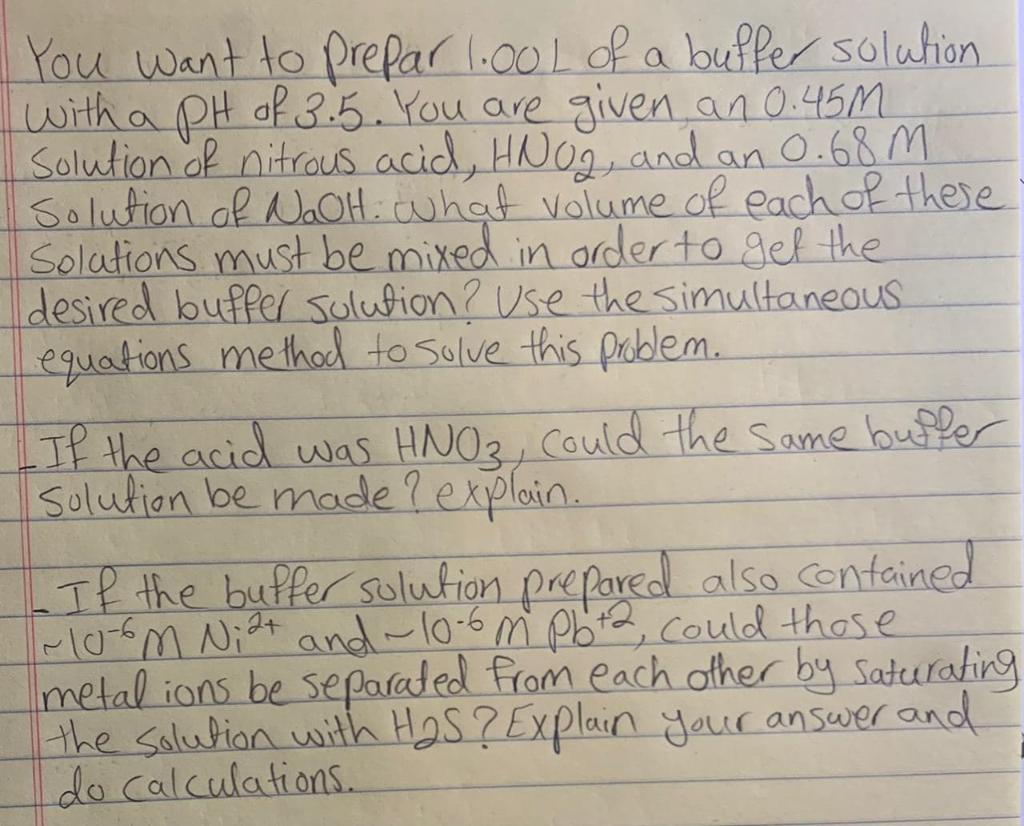 You want to prepar 1.00L of a buffer solution
with a pH of 3.5. You are given an 0.45M
Solution of nitrous acid, HNO2, and an 0.68 M
Solution of NaOH. What volume of each of these
Solutions must be mixed in order to get the
desired buffer solution? Use the simultaneous
equations method to solve this problem.
- If the acid was HNO3, could the same buffer
Solution be made? explain.
- If the buffer solution prepared also contained
~10-6 M Ni2+ and ~10-6 M Pb+2, could those
metal ions be separated from each other by saturating
the solution with H2S? Explain your answer and
do calculations.